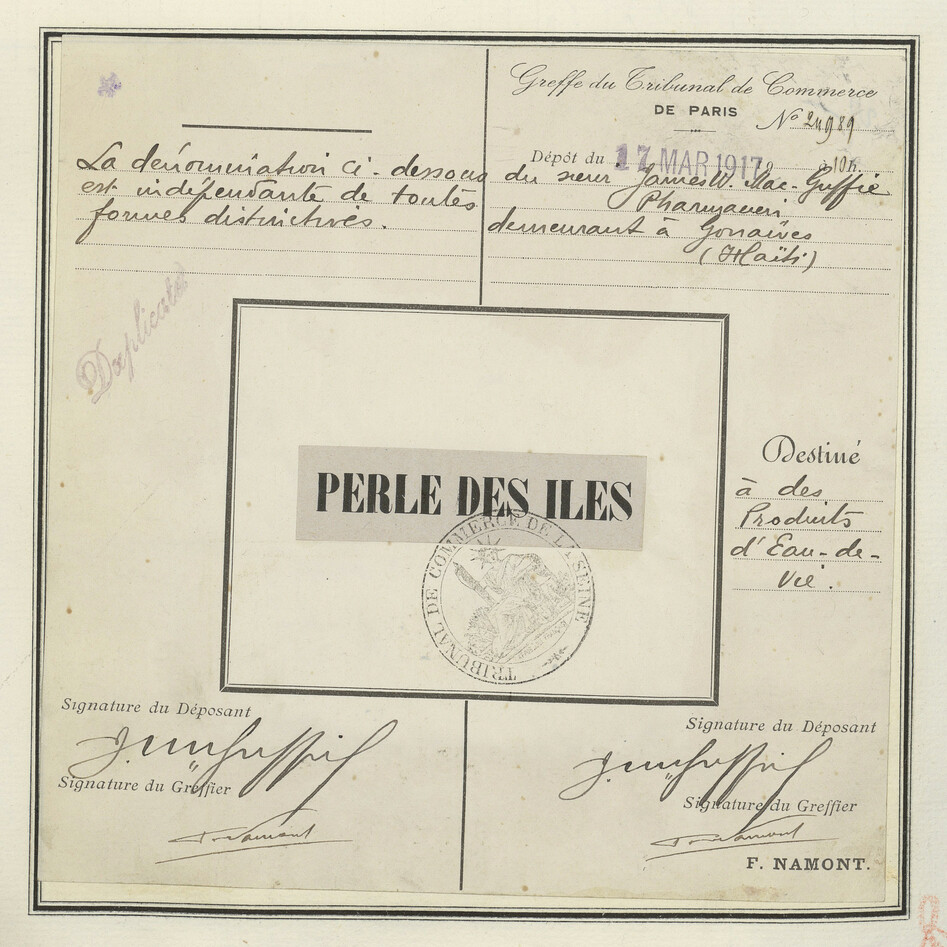 La dénomination ci-dessous
est indépendante de toutes
formes distinctives.
Duplicata
Greffe du Tribunal de Commerce
DE PARIS
N° 24989
Dépôt du 17 MAR 1917 à 10h.
du sieur James W. Mac-Guffie
Pharmacien
demeurant à Gonaïves
(Haïti)
PERLE DES ILES
TRIBUNAL DE COMMERCE DE LA SEINE
Destiné
à des
Produits
d'Eau-de-
Vie.
Signature du Déposant
Signature du Greffier
Signature du Déposant
Signature du Greffier
F. NAMONT.